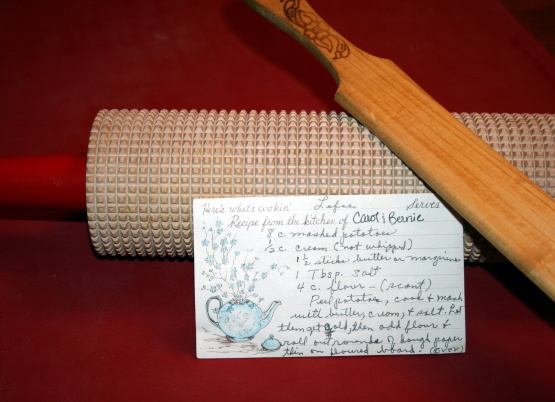 Here's what's cookin' Lefse Serves
Recipe from the kitchen of Carol & Bernie
8 c. mashed potatoes
½ c. cream (not whipped)
1½ sticks butter or margarine
1 Tbsp. salt
4 c. flour - (scant)
Peel potatoes, cook & mash
with butter, cream, & salt. Let
them get cold, then add flour &
roll out rounds of dough paper
thin on floured board. (over)